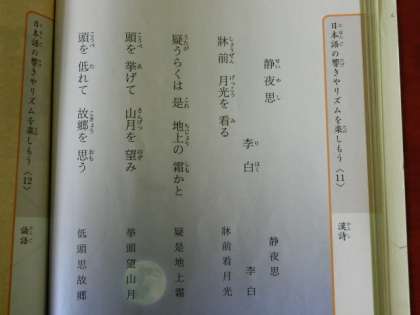 日本語の響きやリズムを楽しもう〈11〉 漢詩
静夜思
李白
牀前 月光を看る
疑うらくは是 地上の霜かと
頭を挙げて 山月を望み
頭を低れて 故郷を思う
静夜思
李白
牀前看月光
疑是地上霜
挙頭望山月
低頭思故郷
日本語の響きやリズムを楽しもう〈12〉 論語